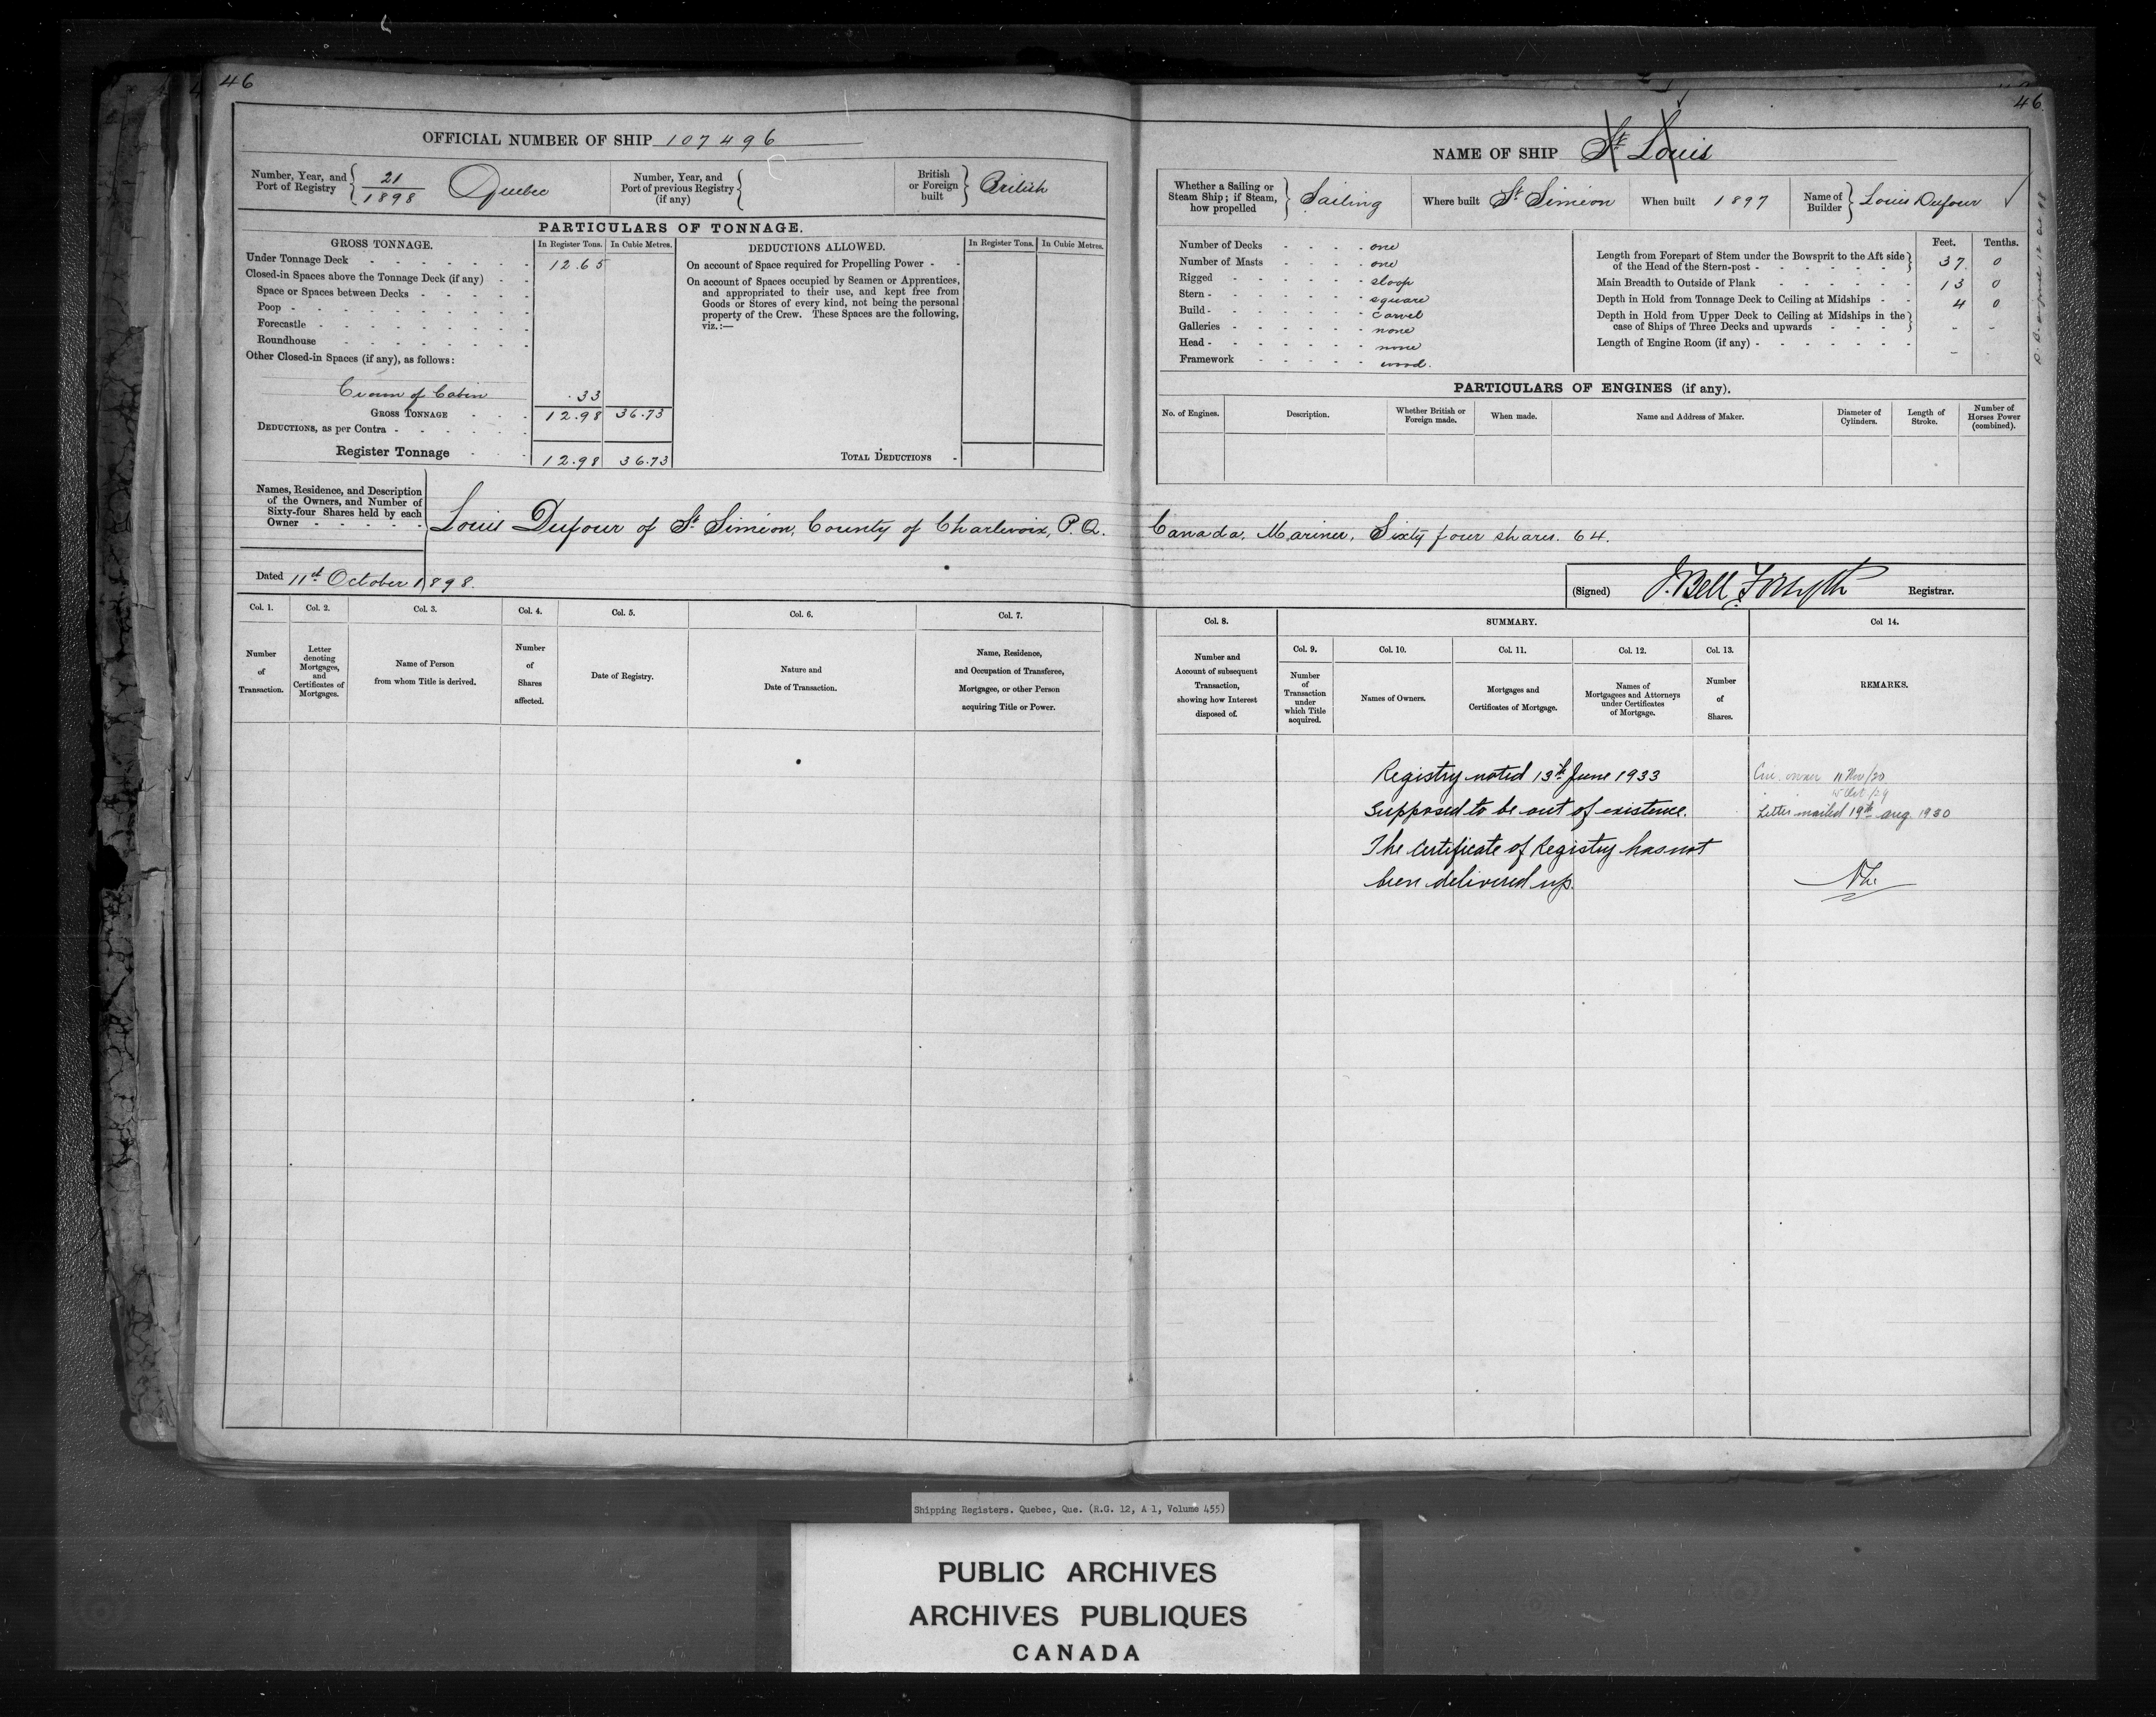 46
OFFICIAL NUMBER OF SHIP 107496
Number, Year, and Port of Registry { 21/1898 Quebec
Number, Year, and Port of previous Registry (if any) {
British or Foreign built } British
PARTICULARS OF TONNAGE.
GROSS TONNAGE. In Register Tons. In Cubic Metres.
Under Tonnage Deck - 12.65
Closed-in Spaces above the Tonnage Deck (if any)
Space or Spaces between Decks
Poop
Forecastle
Roundhouse
Other Closed-in Spaces (if any), as follows:
Crown of Cabin .33
GROSS TONNAGE 12.98 36.73
DEDUCTIONS, as per Contra
Register Tonnage 12.98 36.73
DEDUCTIONS ALLOWED. In Register Tons. In Cubic Metres.
On account of Space required for Propelling Power
On account of Spaces occupied by Seamen or Apprentices,
and appropriated to their use, and kept free from
Goods or Stores of every kind, not being the personal
property of the Crew. These Spaces are the following,
viz.:—
TOTAL DEDUCTIONS
Names, Residence, and Description
of the Owners, and Number of
Sixty-four Shares held by each
Owner
Louis Dufour of St Siméon, County of Charlevoix, P.Q.
Dated 11th October 1898.
Col. 1. Col. 2. Col. 3. Col. 4. Col. 5. Col. 6. Col. 7.
Number of Transaction.
Letter denoting Mortgages, and Certificates of Mortgages.
Name of Person from whom Title is derived.
Number of Shares affected.
Date of Registry.
Nature and Date of Transaction.
Name, Residence, and Occupation of Transferee, Mortgagee, or other Person acquiring Title or Power.
46
NAME OF SHIP St Louis
Whether a Sailing or Steam Ship; if Steam, how propelled } Sailing
Where built St Siméon
When built 1897
Name of Builder } Louis Dufour
Number of Decks - one
Number of Masts - one
Rigged - sloop
Stern - square
Build - carvel
Galleries - none
Head - none
Framework - wood.
Feet. Tenths.
Length from Forepart of Stem under the Bowsprit to the Aft side of the Head of the Stern-post - 37. 0
Main Breadth to Outside of Plank - 13 0
Depth in Hold from Tonnage Deck to Ceiling at Midships - 4 0
Depth in Hold from Upper Deck to Ceiling at Midships in the case of Ships of Three Decks and upwards - -
Length of Engine Room (if any) - -
PARTICULARS OF ENGINES (if any).
No. of Engines. Description. Whether British or Foreign made. When made. Name and Address of Maker. Diameter of Cylinders. Length of Stroke. Number of Horses Power (combined).
Canada, Mariner, Sixty four shares. 64.
(Signed) J. Bell Forsyth Registrar.
Col. 8. SUMMARY. Col 14.
Col. 9. Col. 10. Col. 11. Col. 12. Col. 13.
Number and Account of subsequent Transaction, showing how Interest disposed of.
Number of Transaction under which Title acquired.
Names of Owners.
Mortgages and Certificates of Mortgage.
Names of Mortgagees and Attorneys under Certificates of Mortgage.
Number of Shares.
REMARKS.
Registry noted 13th June 1933
Supposed to be out of existence.
The Certificate of Registry has not
been delivered up.
owner 11 Nov/20
Oct/29
Letter mailed 19th Aug. 1930
Shipping Registers. Quebec, Que. (R.G. 12, A 1, Volume 455)
PUBLIC ARCHIVES
ARCHIVES PUBLIQUES
CANADA